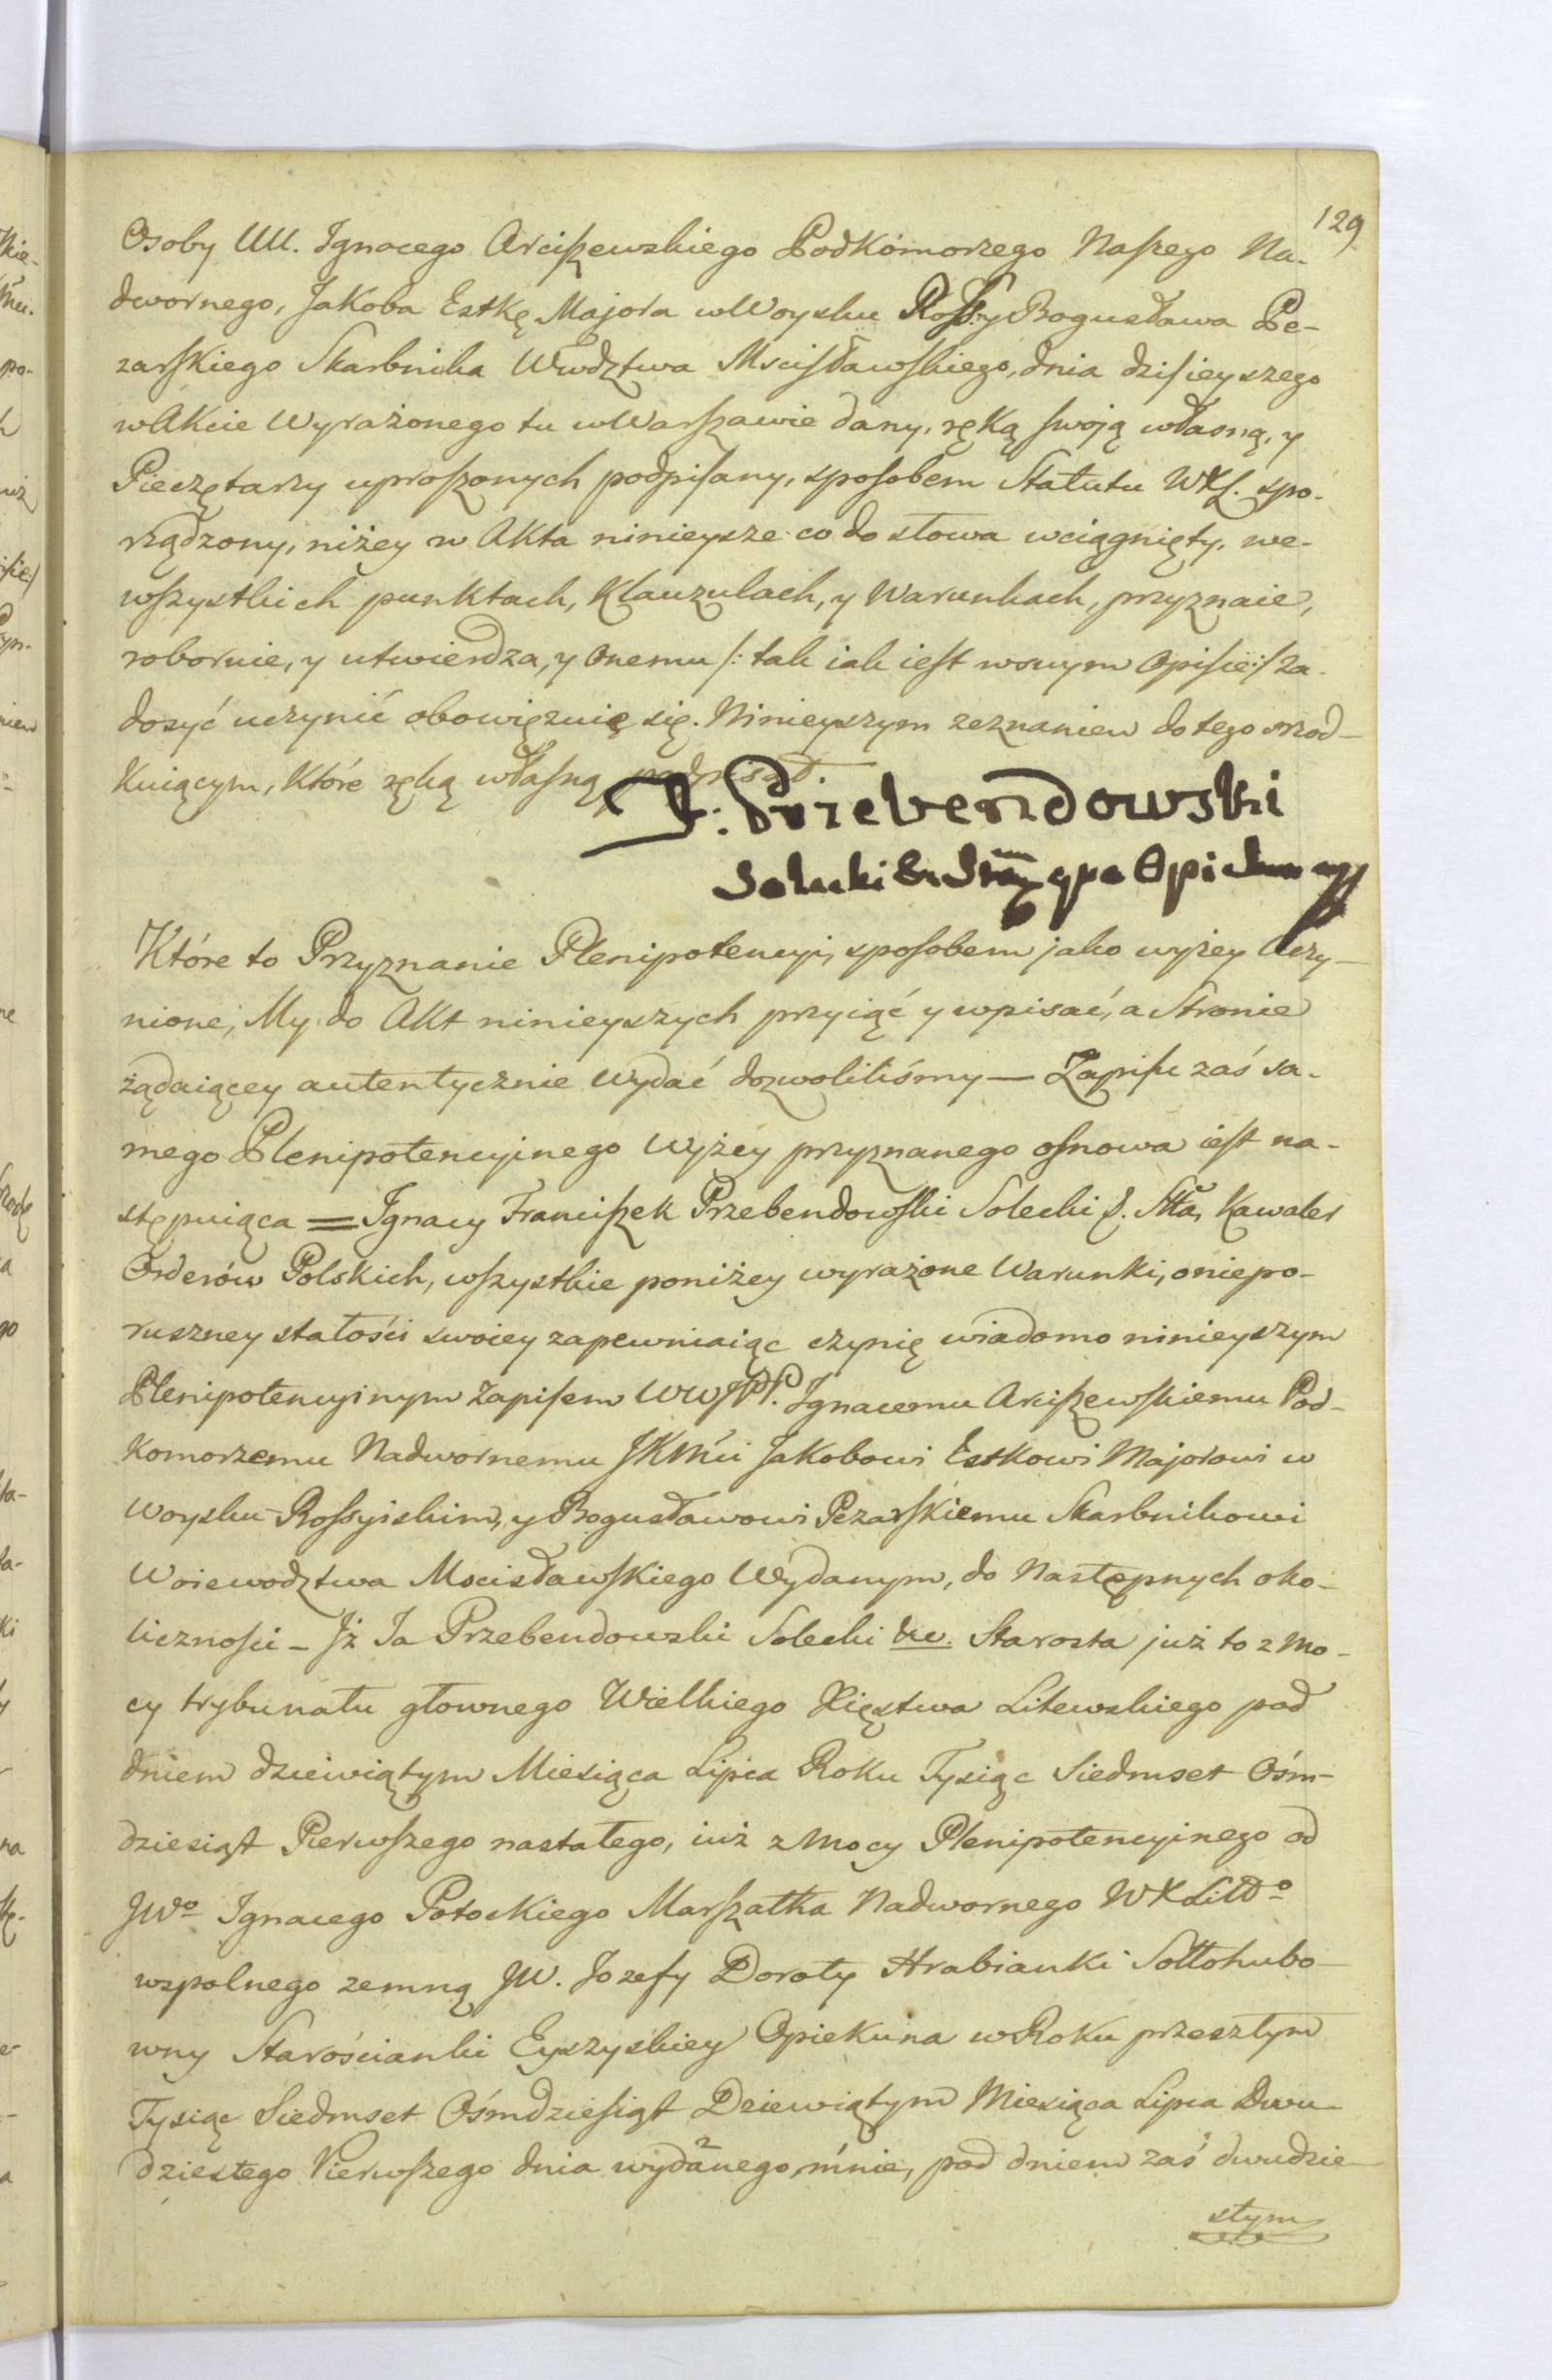 129
Osoby UU. Ignacego Arciszewskiego Podkomorzego Naszego Na-
dwornego, Jakoba Estkę Majora w Woysku Rossy: y Bogusława Pe-
zarskiego Skarbnika Wwdztwa Mscisławskiego, dnia dzisieyszego
w Akcie Wyrażonego tu w Warszawie dany, ręką swoją własną, y
Pieczętarzy uproszonych podpisany, sposobem Statutu WXL. spo-
rządzony, niżey w Akta ninieysze co do słowa wciągnięty, we-
wszystkich punktach, Klauzulach, y Warunkach, przyznaie,
roboruie, y utwierdza, y Onemu /: tak iak iest w swym Opisie :/ za-
dosyć uczynić obowięzuię się. Ninieyszym zeznaniem do tego srzod-
kuiącym, Które ręką własną podpisał.
I: Przebendowski
Solecki
Które to Przyznanie Plenipotencyi, sposobem jako wyżey Uczy-
nione, My do Akt ninieyszych przyiąć y wpisać, a Stronie
żądaiącey autentycznie Wydać dozwoliliśmy — Zapisu zaś sa-
mego Plenipotencyinego Wyżey przyznanego osnowa iest na-
stępuiąca = Ignacy Franciszek Przebendowski Solecki &. Stta, Kawaler
Orderów Polskich, wszystkie poniżey wyrażone Warunki, o niepo-
ruszney stałości swoiey zapewniaiąc czynię wiadomo ninieyszym
Plenipotencyinym Zapisem WWJPP. Ignacemu Arciszewskiemu Pod-
komorzemu Nadwornemu JKMci Jakobowi Estkowi Majorowi w
Woysku Rossyiskim, y Bogusławowi Pezarskiemu Skarbnikowi
Woiewodztwa Mscisławskiego Wydanym, do Następnych oko-
liczności – Iż Ja Przebendowski Solecki &c. Starosta już to z Mo-
cy trybunału głownego Wielkiego Xięstwa Litewskiego pod
dniem dziewiątym Miesiąca Lipca Roku Tysiąc Siedmset Ośm-
dziesiąt Pierwszego nastałego, iuż z Mocy Plenipotencyinego od
JWo Ignacego Potockiego Marszałka Nadwornego WXLittgo
wspolnego zemną JW. Jozefy Doroty Hrabianki Sołłohubo-
wny Starościanki Eyszyskiey Opiekuna w Roku przeszłym
Tysiąc Siedmset Ośmdziesiąt Dziewiątym Miesiąca Lipca Dwu-
dziestego Pierwszego dnia wydanego mnie, pod dniem zaś dwudzie-
stym